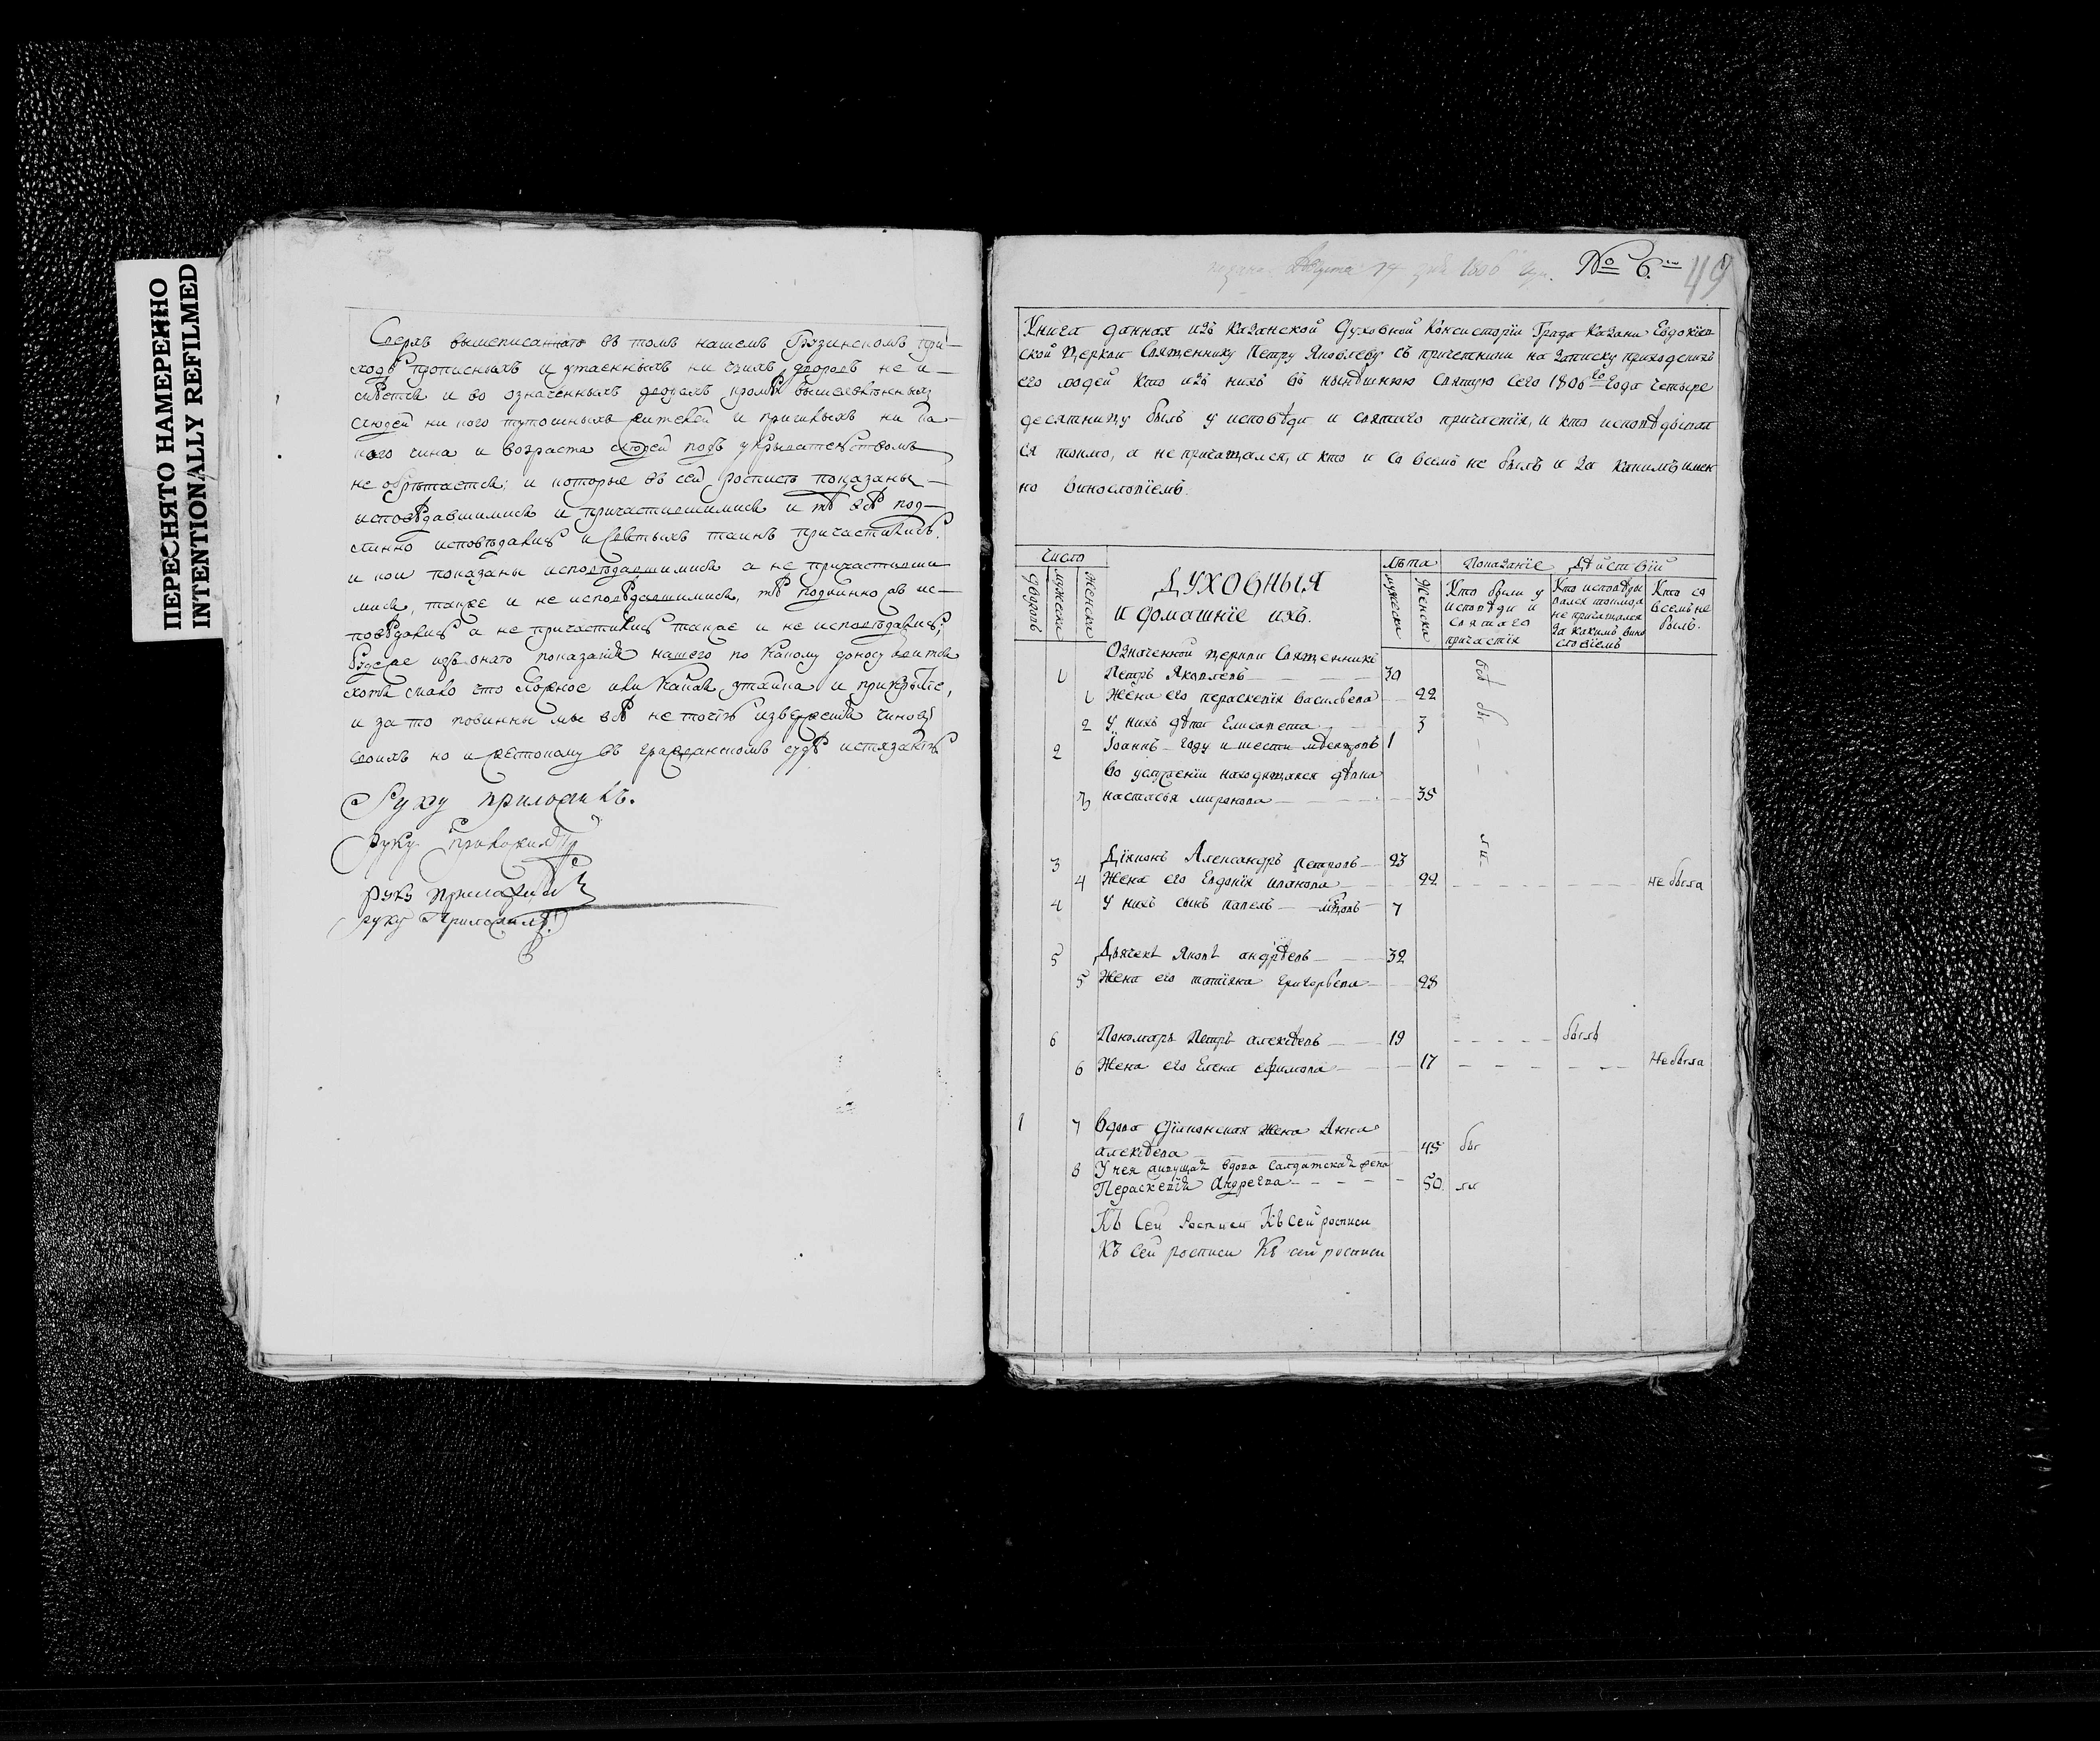 ПЕРЕСНЯТО НАМЕРЕННО
INTENTIONALLY REFILMED
Сверхъ вышеписаннаго въ томъ нашемъ Грузинскомъ при-
ходѣ прописныхъ и утаенныхъ ни чьихъ дворовъ не и-
и во означенныхъ дворахъ кромѣ
людей ни кого тутошныхъ жителей и пришлыхъ ни ка-
кого чина и возраста людей подъ укрывательствомъ
не обрѣтается; и которые въ сей росписи показаны
исповѣдавшимися и причастившимися и тѣ всѣ под-
линно исповѣдались и святыхъ таинъ причастились.
и кои показаны исповѣдавшимися а не причастивши
мися, также и не исповѣдавшимися, тѣ подлинно
повѣдались а не причастились также и не исповѣдались;
Будеже изъ онаго показанія нашего по какому доносу явится
хотя мало что ложное или какая утайка и прикрытіе,
и за то повинны мы всѣ не точію изверженія чиновъ
своихъ но и жестокому въ гражданскомъ судѣ истязанію
Руку приложилъ.
руку приложилъ
руку приложилъ
руку приложилъ
Августа 14 дня № 6. 49
Книга данная изъ Казанской Духовной Консисторіи Града Казани Евдокіев
ской церкви Священнику Петру Яковлеву съ причетники на записку приходскихъ
его людей кто изъ нихъ въ нынѣшнюю святую сего 1800го года четыре
десятницу былъ у исповѣди и святаго причастія, и кто исповѣдывал
ся токмо, а не причащался, и кто и со всемъ не былъ и за какимъ имен
но винословіемъ.
Число Лѣта Показаніе Дѣйствій
дворовъ мужески женски ДУХОВНЫЯ и домашніе ихъ. мужески женски
Кто были у исповѣди и святаго причастія
Кто исповѣды вался токмо, а не причащался за какимъ вино словіемъ
Кто со всемъ не былъ.
Означенной церкви Священникъ
1 Петръ Яковлевъ 30
1 Жена его Параскевія Васильева 22
2 У нихъ дѣти Елисавета 3
2 Іоаннъ году и шести мѣсяцовъ 1
Во услуженіи находящаяся дѣвка
3 Настасья Миронова 35
3 Діяконъ Александръ Петровъ 23
4 Жена его Евдокія Иванова 22 не была
4 У нихъ сынъ Павелъ мѣсяцовъ 7
5 Дьячекъ Яковъ Андрѣевъ 32
5 Жена его Татіяна Григорьева 28
6 Пономарь Петръ Алексѣевъ 19 былъ
6 Жена его Елена Ефимова 17 не была
1 7 Вдова діаконская жена Анна
Алексѣева 45 бы
8 У нея живущая вдова салдатская жена
Параскевія Андреева 50 ли
Къ сей росписи Къ сей росписи
Къ сей росписи Къ сей росписи